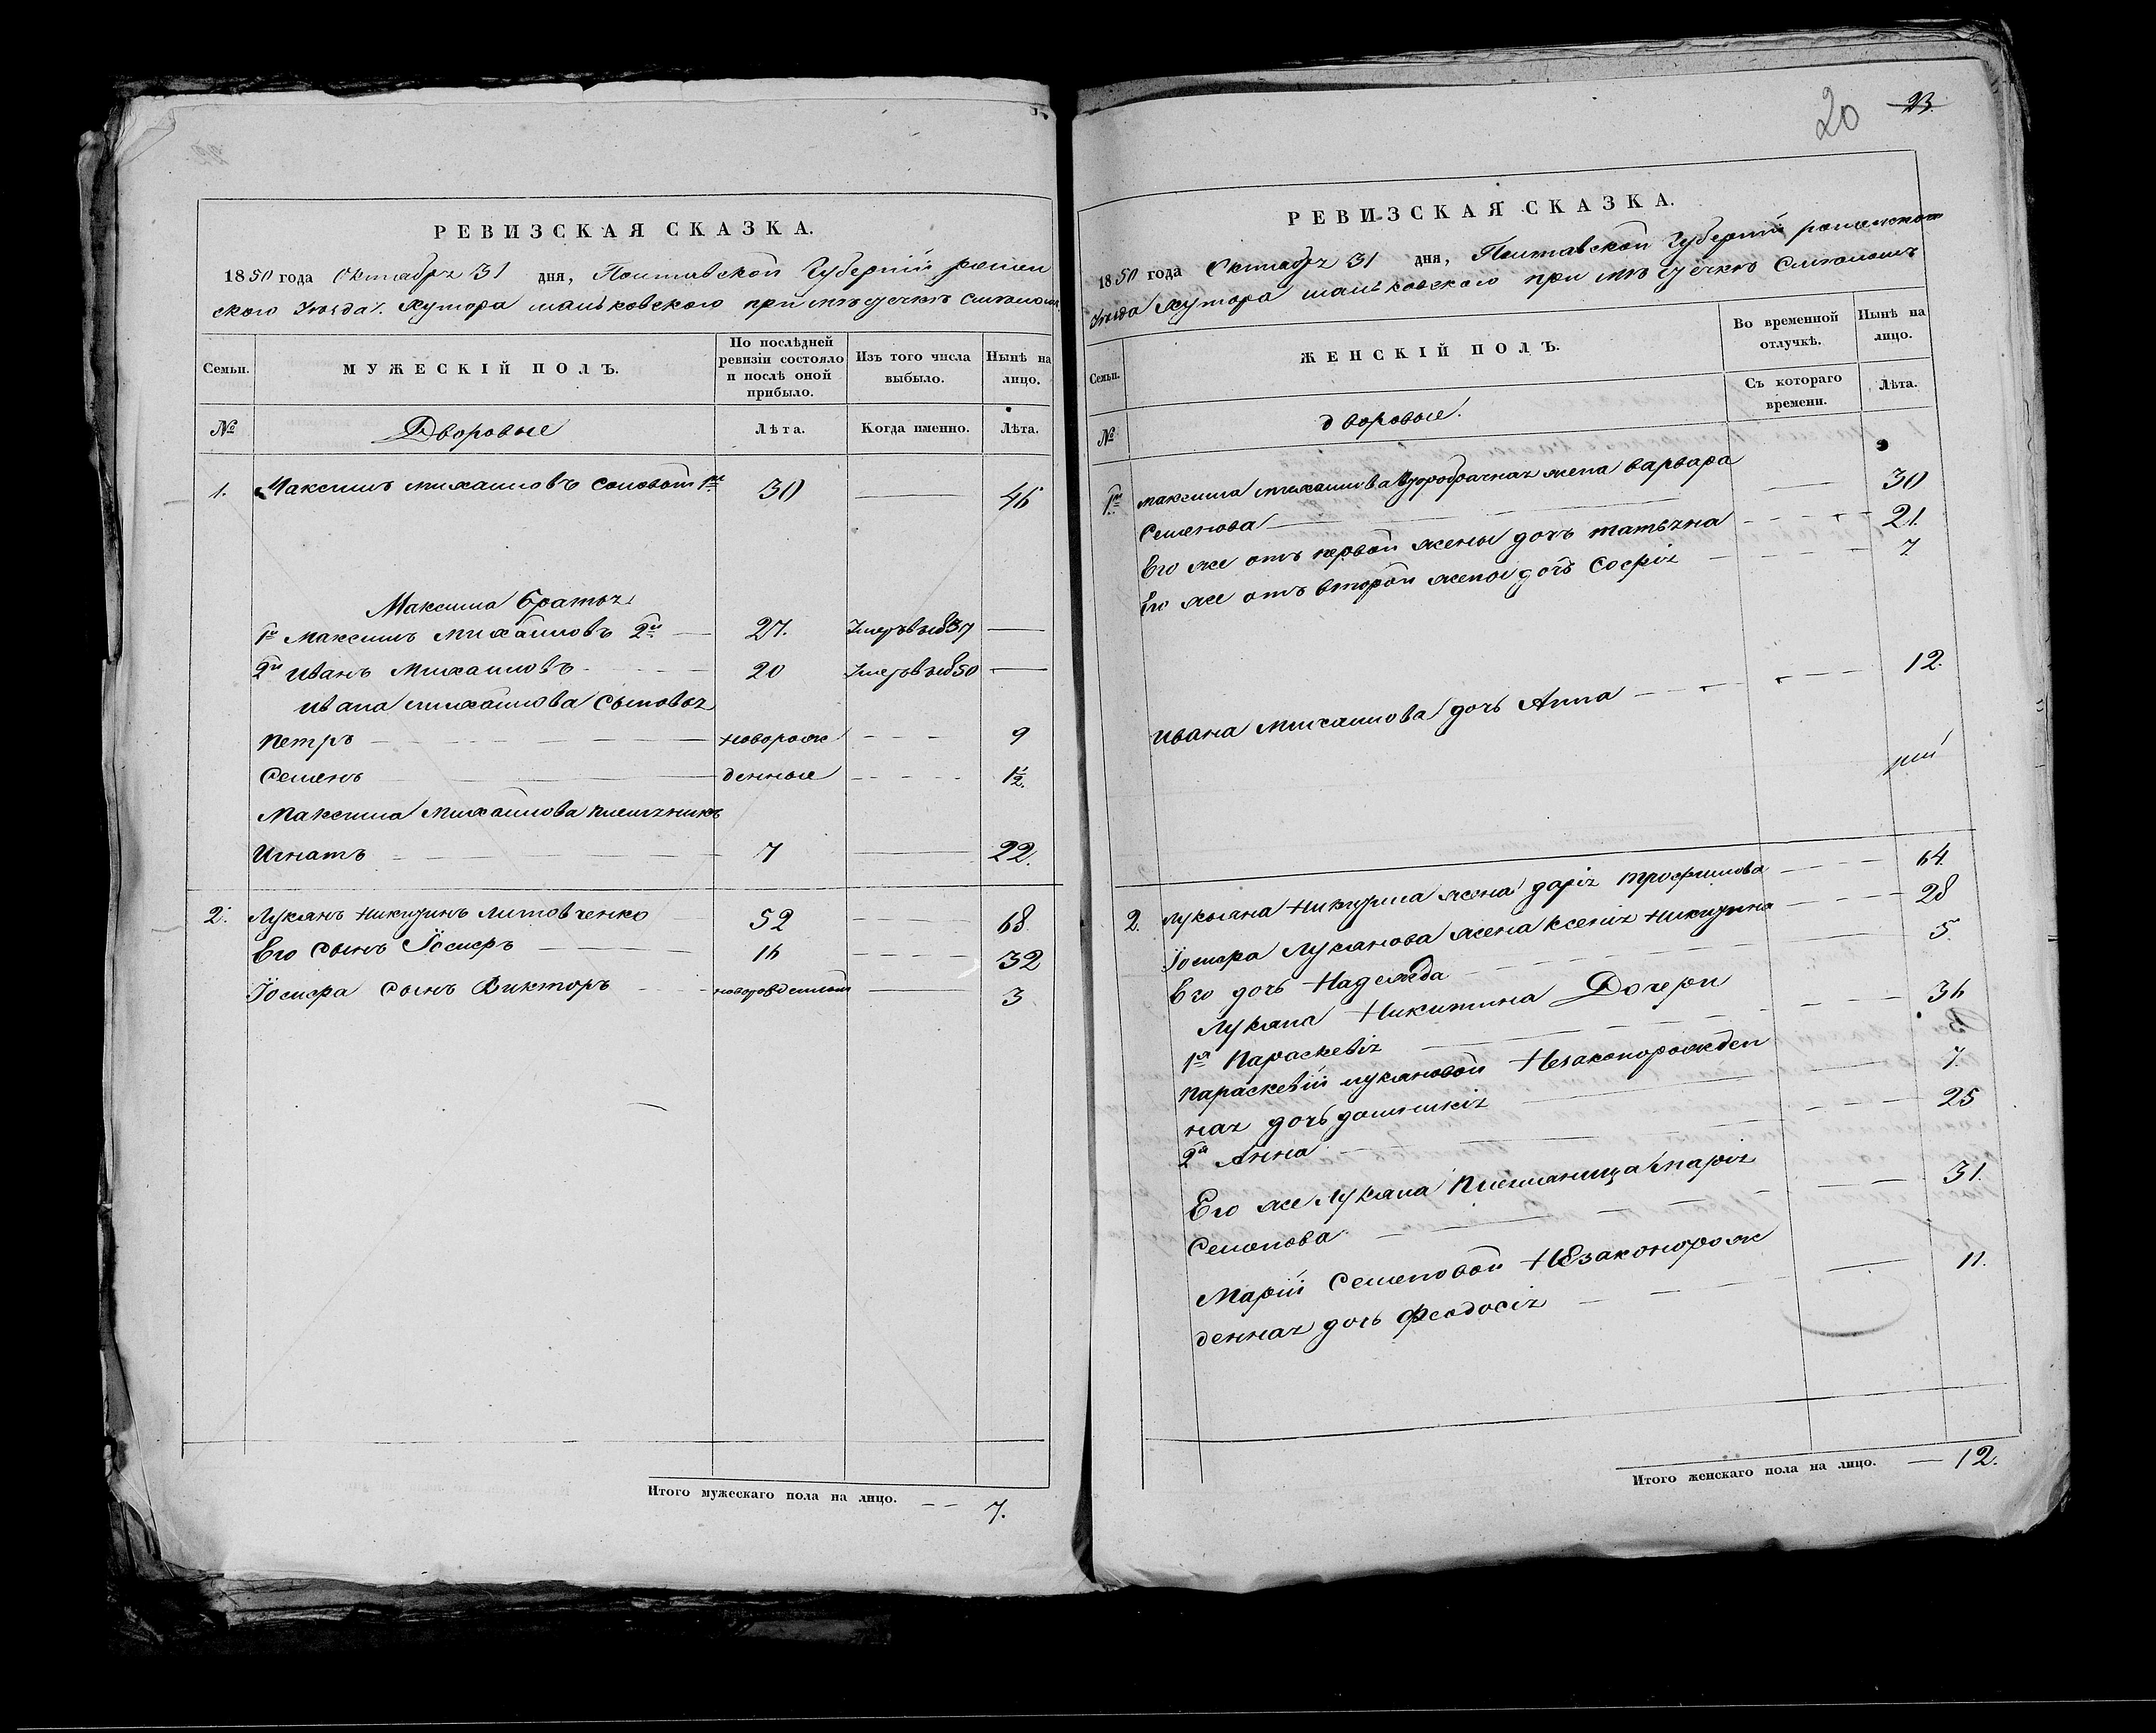 РЕВИЗСКАЯ СКАЗКА.
1850 года Октября 31 дня, Полтавской Губерніи ромен
ского Уезда. Хутора при местечке
Семьи.
МУЖЕСКІЙ ПОЛЪ.
По послѣдней ревизіи состояло и послѣ оной прибыло.
Изъ того числа выбыло.
Нынѣ на лицо.
№
Дворовые
Лѣта.
Когда именно.
Лѣта.
1. Максимъ Михаиловъ 1й 30 46
Максима братья
1й Максимъ Михайловъ 2й 27. Умеръ въ 1837
2й Иванъ Михаиловъ 20 Умеръ въ 1850
Ивана Михайлова сыновья
Петръ новорож 9
Семенъ денные 1½.
Максима Михайлова племянникъ
Игнатъ 7 22.
2. Лукянъ Никитинъ Литовченко 52 68
Его сынъ Іосифъ 16 32
Іосифа сынъ Викторъ новорожденный 3
Итого мужескаго пола на лицо. 7.
20 23.
РЕВИЗСКАЯ СКАЗКА.
1850 года Октября 31 дня, Полтавской Губерніи роменского
Уезда Хутора при местечке
Семьи.
ЖЕНСКІЙ ПОЛЪ.
Во временной отлучкѣ.
Нынѣ на лицо.
№
дворовые.
Съ котораго времени.
Лѣта.
1й Максима Михаилова второбрачная жена Варвара
Семенова 30
Его же отъ первой жены дочь татьяна 21.
Его же отъ второй жены дочь Софія 7.
Ивана Михаилова дочь Анна 12.
2. Лукьяна Никитина жена дарія трофимова 64.
Іосифа Лукянова жена Ксенія Никитина 28
Его дочь Надежда 5.
Лукяна Никитина Дочери
1я Параскевія 36
Параскевіи лукяновой Незаконорожден
ная дочь домникія 7.
2я Анна 25
Его же Лукяна племяница Марія
Семенова 31.
Маріи Семеновой Незаконорож
денная дочь Феодосія 11.
Итого женскаго пола на лицо. 12.